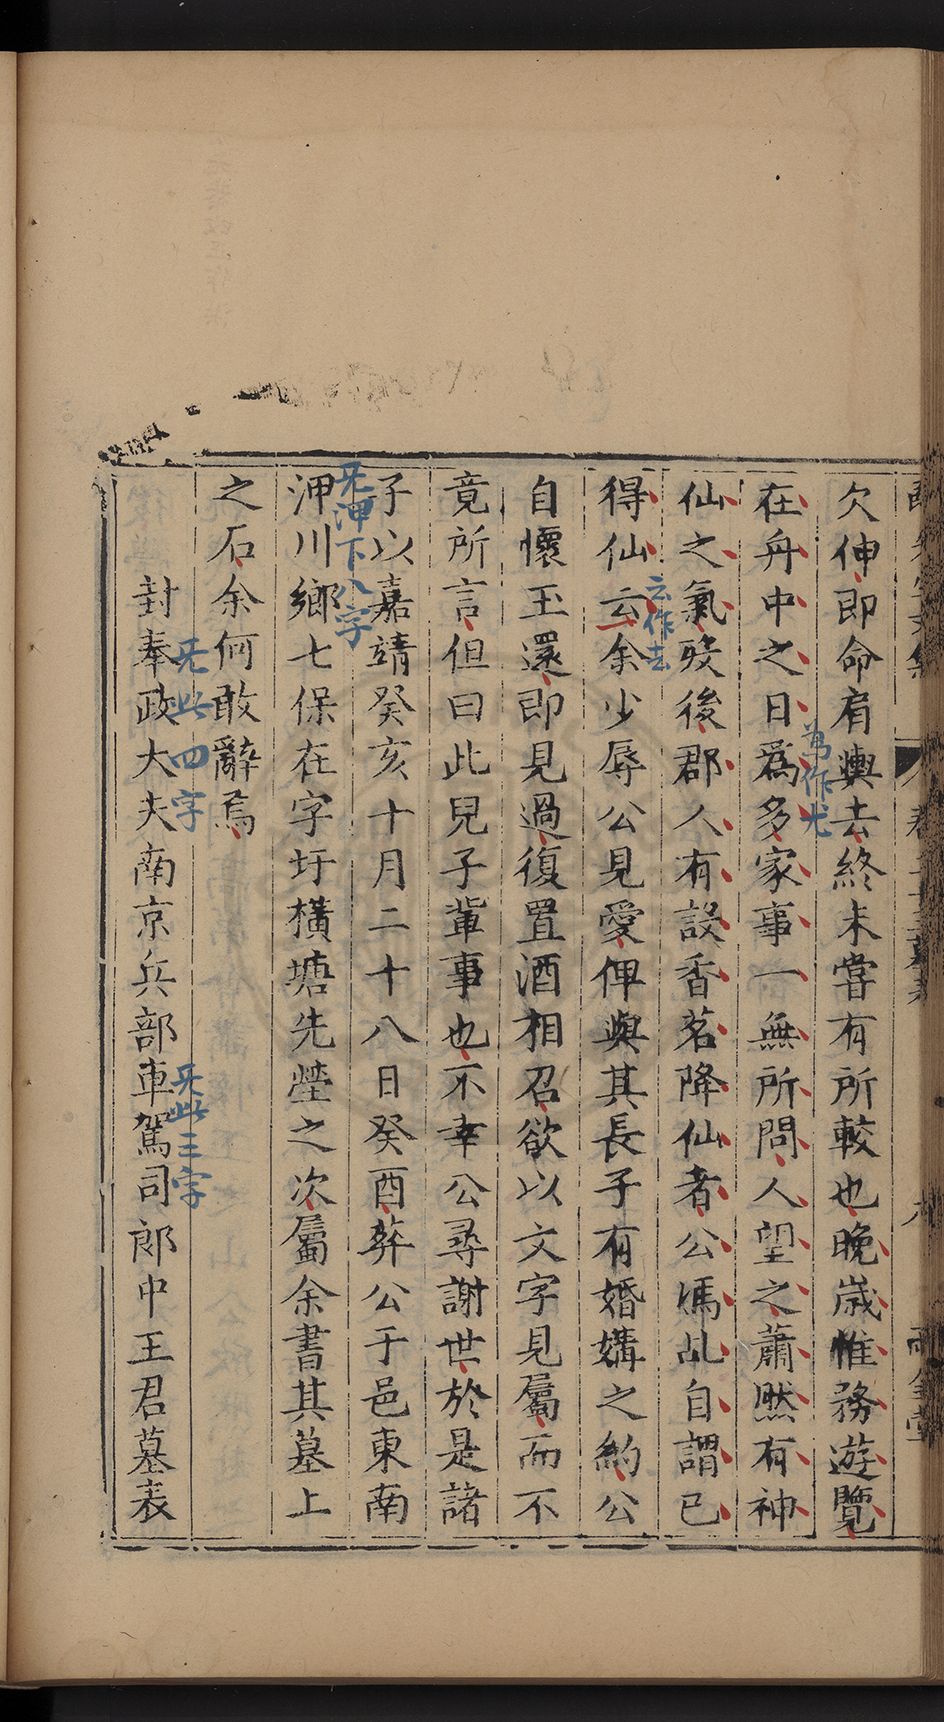 欠伸即命肩輿去終未嘗有所較也晚歲惟務遊覽
在舟中之日爲多家事一無所問人望之蕭然有神
為作尤
仙之氣歿後郡人有設香茗降仙者公馮乩自謂已
得仙云余少辱公見愛俾與其長子有婚媾之約公
云作去
自懷玉還即見過復置酒相召欲以文字見屬而不
竟所言但曰此兒子輩事也不幸公尋謝世於是諸
子以嘉靖癸亥十月二十八日癸酉葬公于邑東南
无浬下八字
浬川鄉七保在字圩橫塘先塋之次屬余書其墓上
之石余何敢辭焉
无此四字
无此三字
封奉政大夫南京兵部車駕司郎中王君墓表